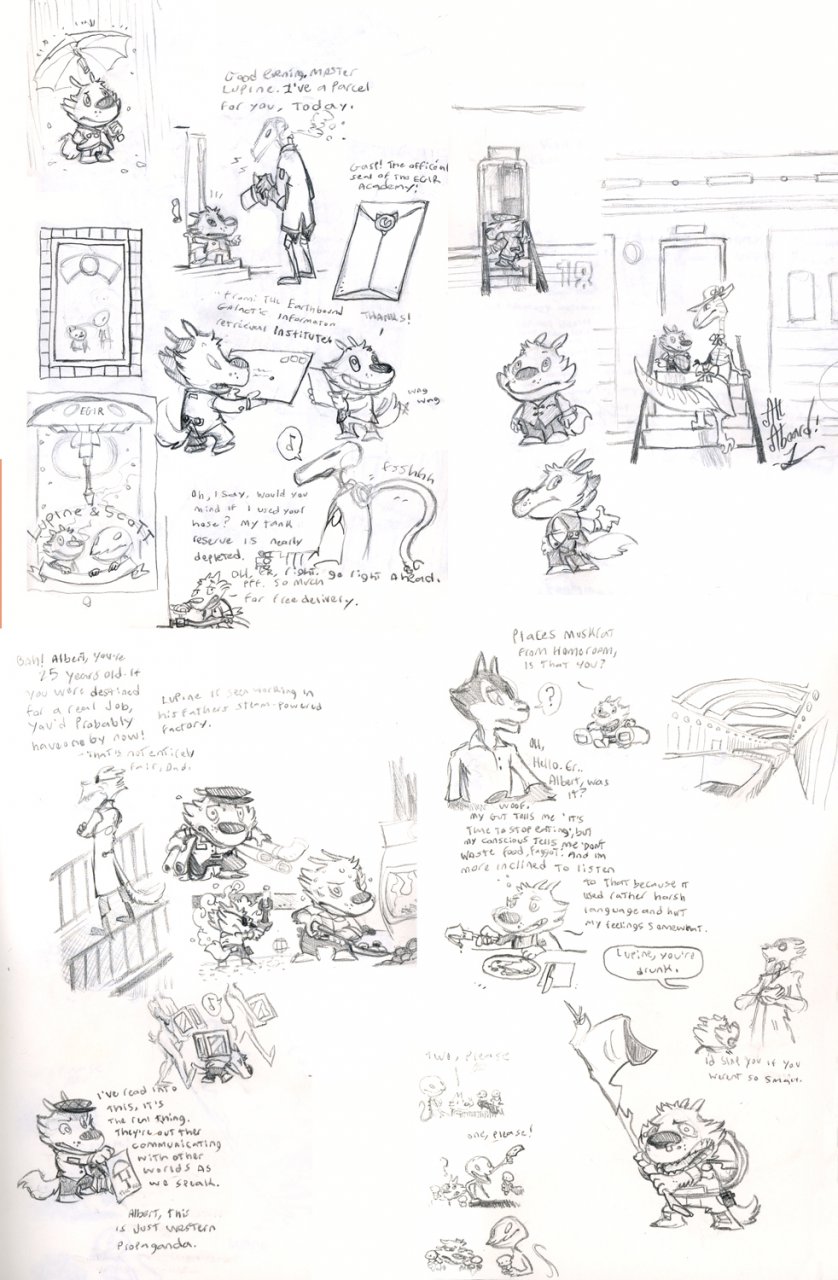 Good Evening, Master
Lupine. I've a Parcel
for you, Today.
Gasp! The official
seal of the EGIR
Academy!
"From: The Earthbound
Galactic Informaton
retrieval Institutes
THANKS!
wag
wag
EGIR
Lupine & Scott
fsshhh
Oh, I say. Would you
mind if I used your
hose? My tank
reserve is nearly
depleted.
Oh, er, right. go right Ahead.
Pff. So much
for free delivery.
All
Aboard!
Bah! Albert, you're
25 years old. If
you were destined
for a real Job,
you'd Probably
have one by now!
-That's not entirely
fair, Dad.
Lupine is seen working in
his Fathers steam-powered
factory.
I've read into
this, it's
the real thing.
They're out ther
communicating
with other
worlds as
we speak.
Albert, this
is just western
Propaganda.
Places Muskrat
from Homoroom,
Is that you?
?
Ah,
Hello. Er..
Albert, was
it?
Woof.
My gut tells me 'it's
time to stop eating', but
my conscious tells me 'Dont
waste food, Faggot'. And im
more inclined to listen
to that because it
used rather harsh
language and hurt
my feelings somewhat.
Lupine, you're
drunk.
I'd slap you if you
werent so small.
Two, Please
one, please!
?